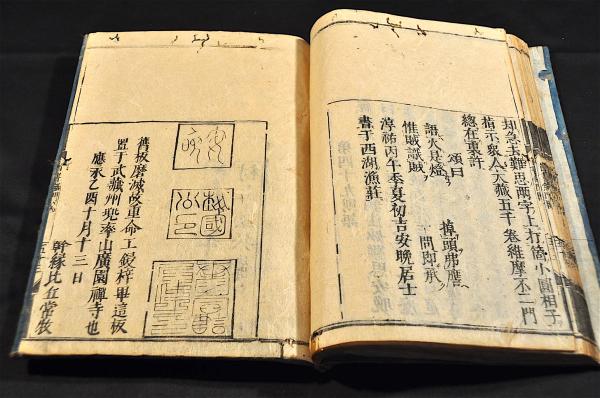 却急去難思兩字上打箇小圓相子
指示衆人大藏五千卷維摩不二門
總在裏許
頌曰
語火是燈 掉頭弗應
惟賊識賊 一問即承
淳祐丙午季夏初吉安晩居士
書于西湖漁莊
舊板磨滅故重命工鋟梓畢這板
置于武藏州兜率山廣園禪寺也
應永乙酉十月十三日
幹縁比丘常牧